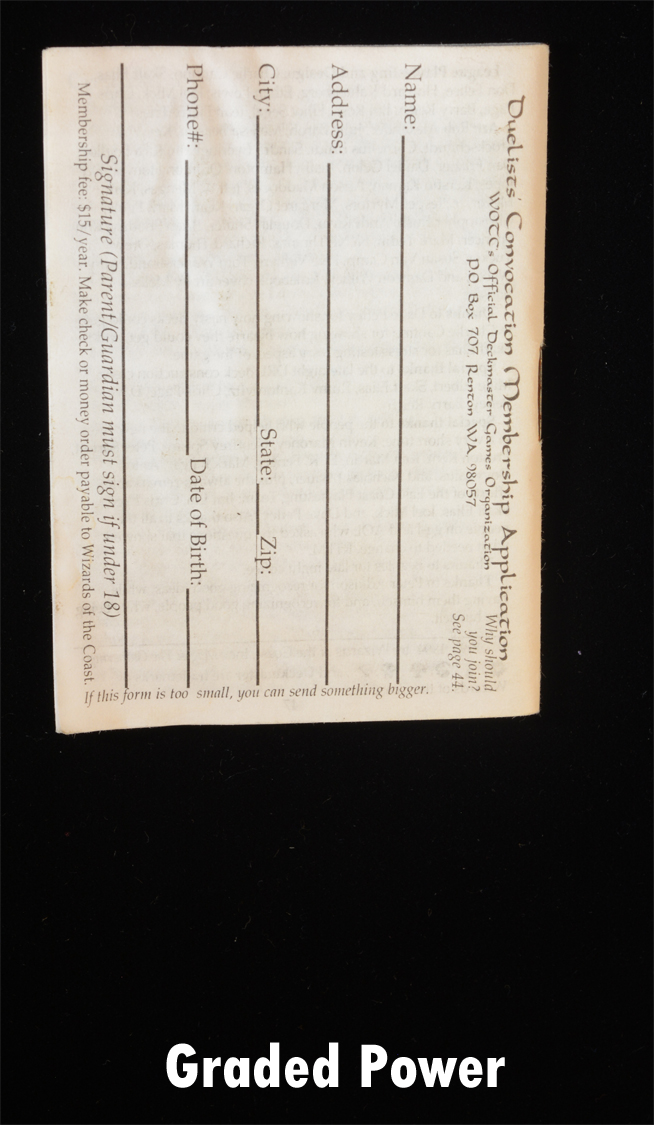 Duelists' Convocation Membership Application
WOTC's Official Deckmaster Games Organization
P.O. Box 707, Renton WA 98057
Why should
you join?
See page 44.
Name:
Address:
City: State: Zip:
Phone#: Date of Birth:
Signature (Parent/Guardian must sign if under 18)
Membership fee: $15/year. Make check or money order payable to Wizards of the Coast.
If this form is too small, you can send something bigger.
Graded Power